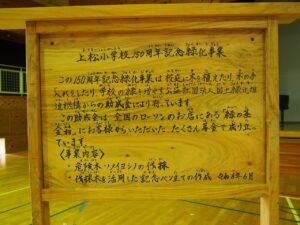 上松小学校150周年記念緑化事業
この150周年記念緑化事業は校庭に木を植えたり、木の手
入れをしたり、学校の緑を増やす公益社団法人国土緑化推
進機構からの助成金により行っています。
この助成金は、全国のローソンのお店にある「緑の募
金箱」にお客様からいただいた、たくさん募金で成り立っ
ています。
〈事業内容〉
・危険木ソメイヨシノの伐採
・伐採木を活用した記念ベンチの作成 令和5年6月